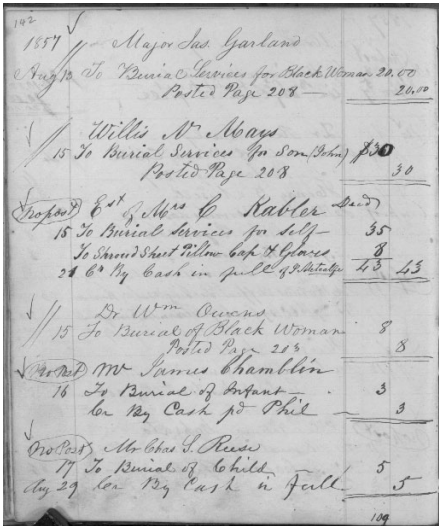 142
1857 Major Jas. Garland
Aug 13 To Burial Services for Black Woman 20.00
Posted Page 208 — 20.00
Willis N. Mays
15 To Burial Services for Son (John) $30
Posted Page 208 30
No post Est of Mrs C Kabler Decd
15 To Burial Services for Self — 35
To Shroud Sheet Pillow Cap & Gloves 8
21 Cr By Cash in full of 43 43
Dr Wm Owens
15 To Burial of Black Woman 8
Posted Page 203 8
No Post Mr James Chamblin
16 To Burial of Infant — 3
Cr By Cash pd Phil — 3
No Post Mr Chas S. Reese
17 To Burial of Child 5
Aug 29 Cr By Cash in full 5
109